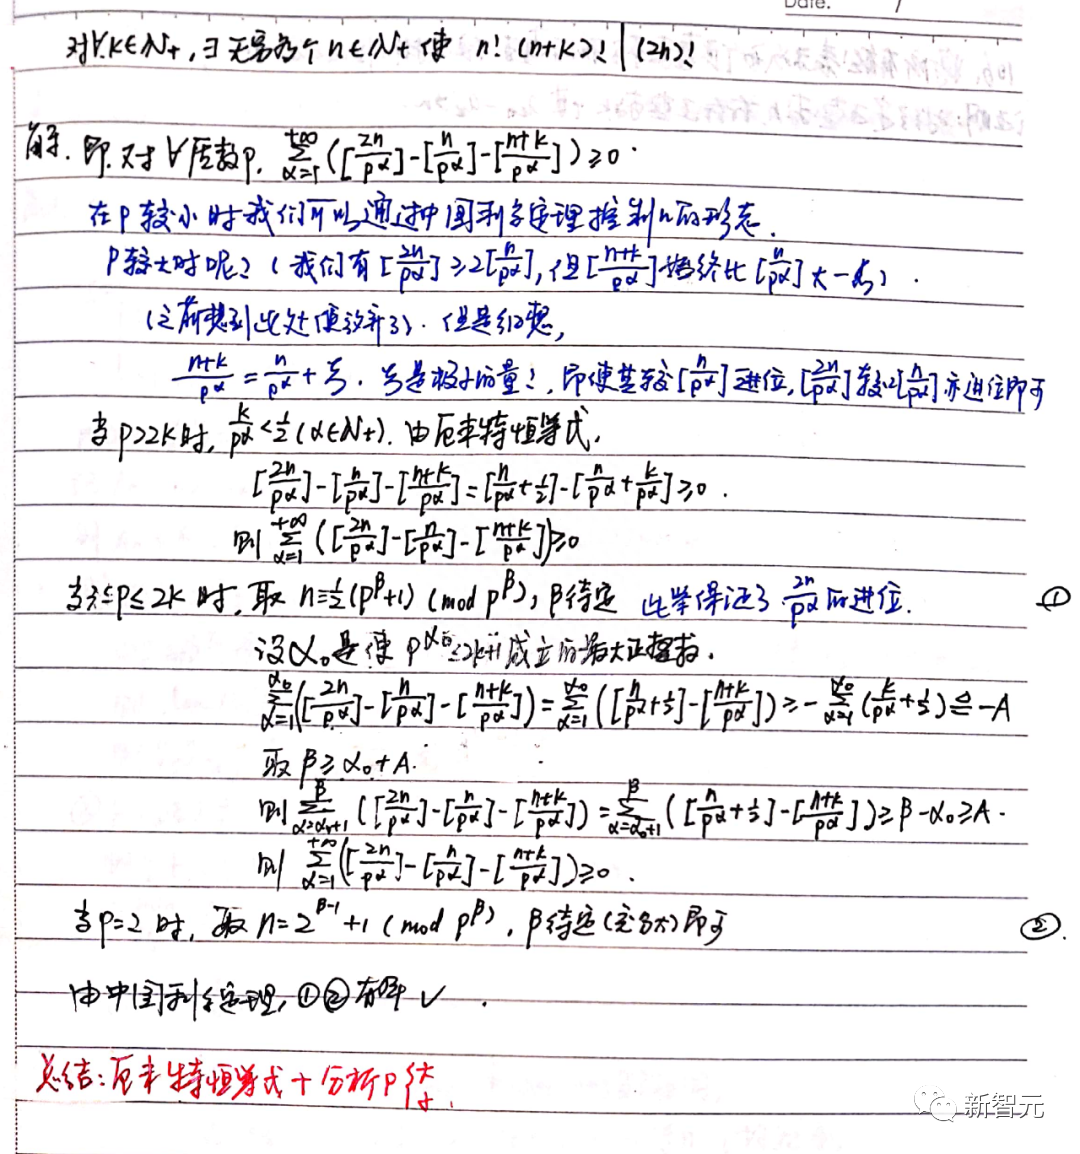 Date.
对∀k∈N₊,∃无穷多个n∈N₊使 n!(n+k)! | (2n)!
解.即.对∀质数p, \sum_{α=1}^{+∞}([\frac{2n}{p^α}]-[\frac{n}{p^α}]-[\frac{n+k}{p^α}])≥0.
在p较小时我们可以通过中国剩余定理控制n的形态.
p较大时呢?(我们有[\frac{2n}{p^α}]≥2[\frac{n}{p^α}],但[\frac{n+k}{p^α}]始终比[\frac{n}{p^α}]大一点).
(之前想到此处便放弃了).但是细想,
\frac{n+k}{p^α}=\frac{n}{p^α}+ 是极小的量!,即使其较[\frac{n}{p^α}]进位,[\frac{2n}{p^α}]较2[\frac{n}{p^α}]亦进位即可
当p>2k时,\frac{k}{p^α}<\frac{1}{2}(α∈N₊).由厄米特恒等式,
[\frac{2n}{p^α}]-[\frac{n}{p^α}]-[\frac{n+k}{p^α}]=[\frac{n}{p^α}+\frac{1}{2}]-[\frac{n}{p^α}+\frac{k}{p^α}]≥0.
则\sum_{α=1}^{+∞}([\frac{2n}{p^α}]-[\frac{n}{p^α}]-[\frac{n+k}{p^α}])≥0
当3≤p≤2k时,取 n≡\frac{1}{2}(p^β+1) (mod p^β),β待定 此举保证了\frac{2n}{p^α}的进位. ①
设α₀是使 p^{α₀}≤2k+1成立的最大正整数.
\sum_{α=1}^{α₀}([\frac{2n}{p^α}]-[\frac{n}{p^α}]-[\frac{n+k}{p^α}])=\sum_{α=1}^{α₀}([\frac{n}{p^α}+\frac{1}{2}]-[\frac{n+k}{p^α}])≥-\sum_{α=1}^{α₀}(\frac{k}{p^α}+\frac{1}{2})≜-A
取β≥α₀+A.
则\sum_{α=α₀+1}^{β}([\frac{2n}{p^α}]-[\frac{n}{p^α}]-[\frac{n+k}{p^α}])=\sum_{α=α₀+1}^{β}([\frac{n}{p^α}+\frac{1}{2}]-[\frac{n+k}{p^α}])≥β-α₀≥A.
则\sum_{α=1}^{+∞}([\frac{2n}{p^α}]-[\frac{n}{p^α}]-[\frac{n+k}{p^α}])≥0.
当p=2时,取n=2^{β-1}+1 (mod p^β),β待定(充分大)即可 ②.
由中国剩余定理,①②有解√.
总结:厄米特恒等式+分析p大小.
新智元